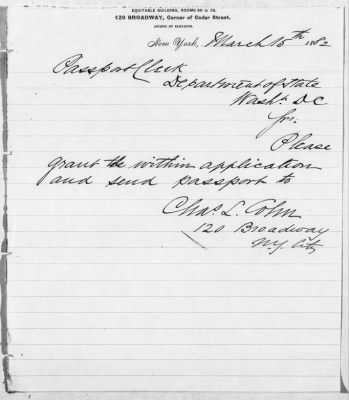 EQUITABLE BUILDING, ROOMS 60 to 65.
120 BROADWAY, Corner of Cedar Street.
New York, March 15th 1882
Passport Clerk
Department of State
Washn D C
Sir,
Please
grant the within application
and send passport to
Chas. L. Cohn
120 Broadway
N.Y. City